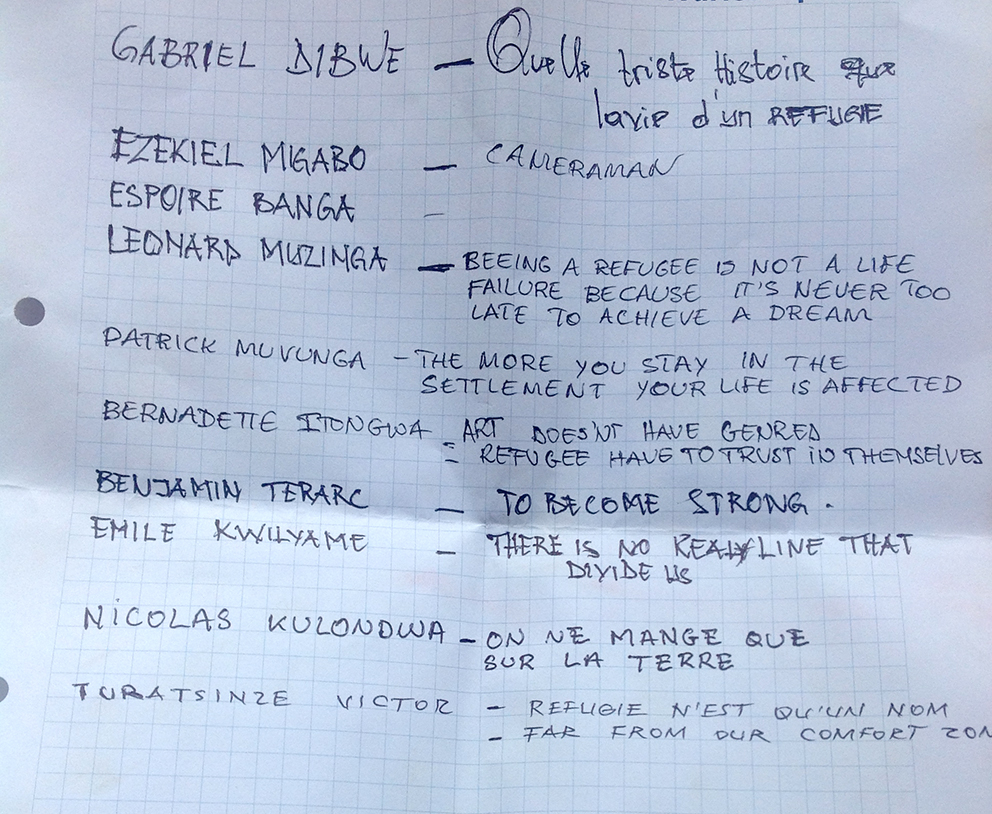 GABRIEL DIBWE — Quelle triste Histoire que
la vie d'un REFUGIE
EZEKIEL MIGABO — CAMERAMAN
ESPOIRE BANGA —
LEONARD MUZINGA — BEEING A REFUGEE IS NOT A LIFE
FAILURE BECAUSE IT'S NEVER TOO
LATE TO ACHIEVE A DREAM
PATRICK MUVUNGA — THE MORE YOU STAY IN THE
SETTLEMENT YOUR LIFE IS AFFECTED
BERNADETTE ITONGWA - ART DOES'NT HAVE GENRED
- REFUGEE HAVE TO TRUST IN THEMSELVES
BENJAMIN TERARC — TO BECOME STRONG.
EMILE KWILYAME — THERE IS NO REAL LINE THAT
DIVIDE US
NICOLAS KULONDWA — ON NE MANGE QUE
SUR LA TERRE
TURATSINZE VICTOR — REFUGIE N'EST QU'UN NOM
— FAR FROM OUR COMFORT ZON